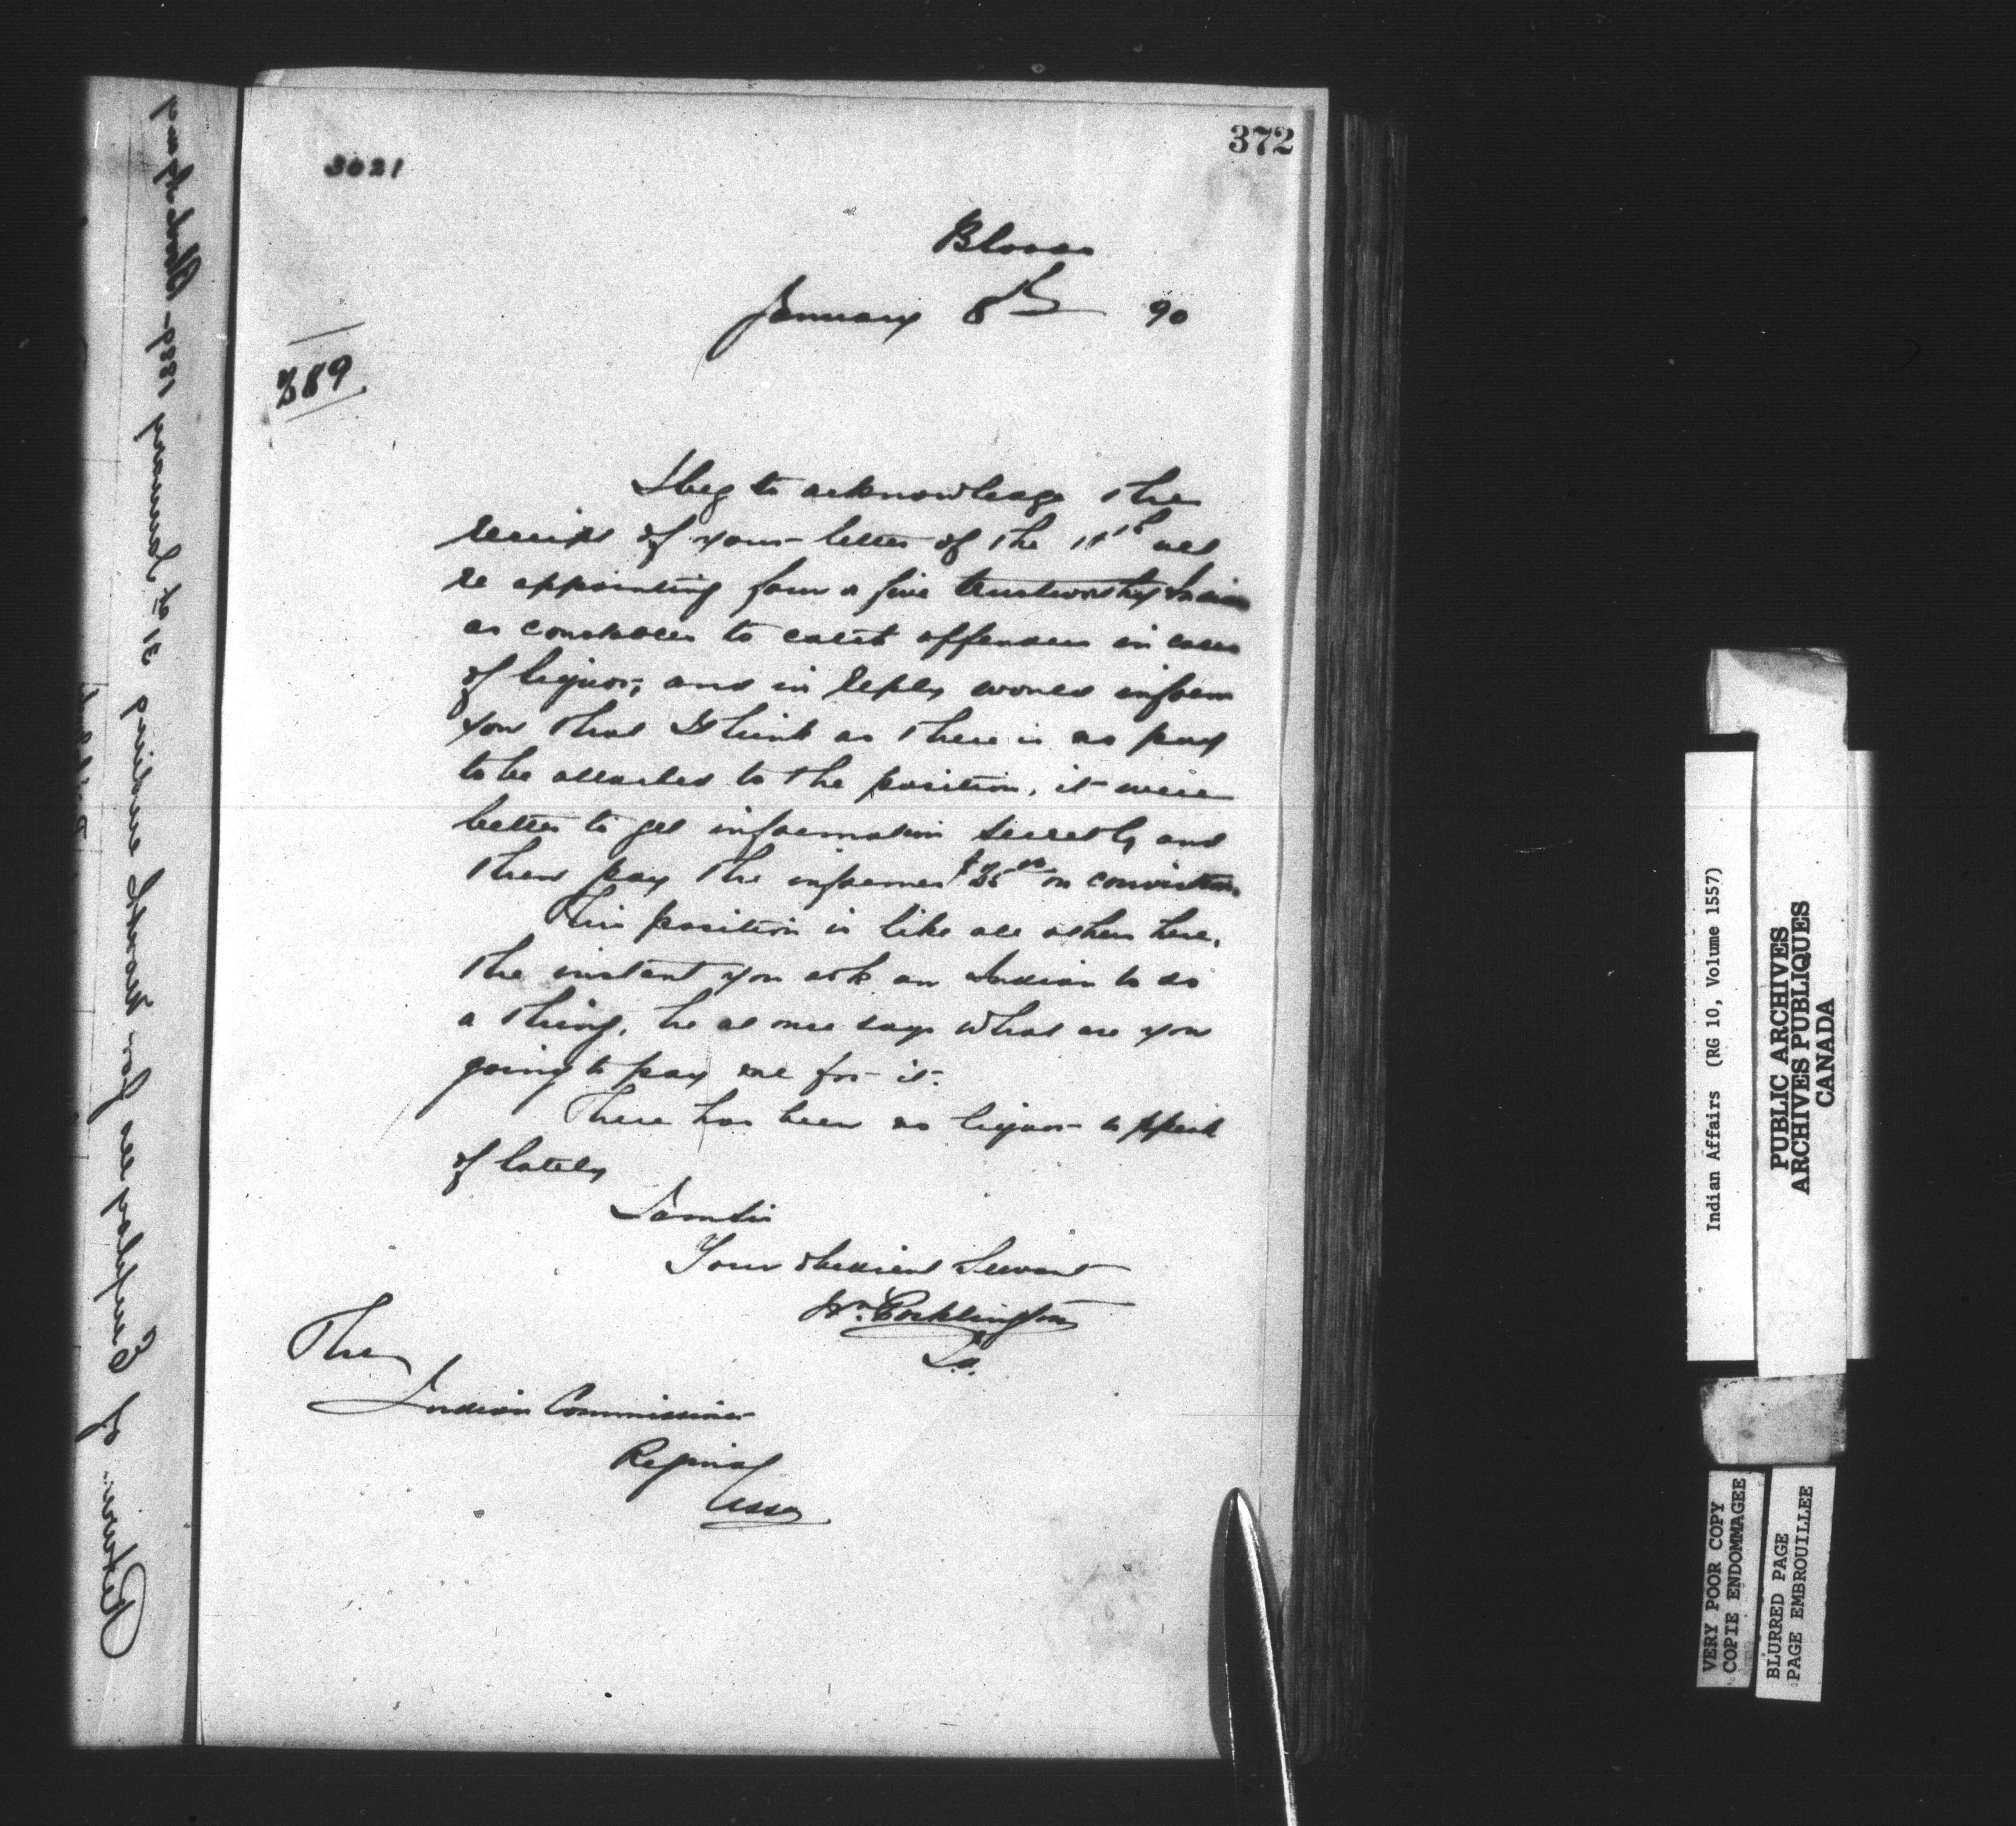 372
3021
Blood
January 8th 90
389.
I beg to acknowledge the
receipt of your letter of the 11th ult
re appointing four or five trustworthy Indians
as constables to catch offenders in cases
of liquor, and in reply would inform
you that I think as there is no pay
to be attached to the position, it were
better to get information secretly and
then pay the informer $25 00 on conviction
This position is like all others here,
the instant you ask an Indian to do
a thing, he at once says what are you
going to pay me for it.
There has been no liquor to speak
of lately
I am Sir
Your obedient Servant
Wm. Pocklington
I.A.
The
Indian Commissioner
Regina
Assa
Return of Employees for month ending 31st January 1889 - Blood Agency
Indian Affairs (RG 10, Volume 1557)
PUBLIC ARCHIVES
ARCHIVES PUBLIQUES
CANADA
VERY POOR COPY
COPIE ENDOMMAGEE
BLURRED PAGE
PAGE EMBROUILLEE